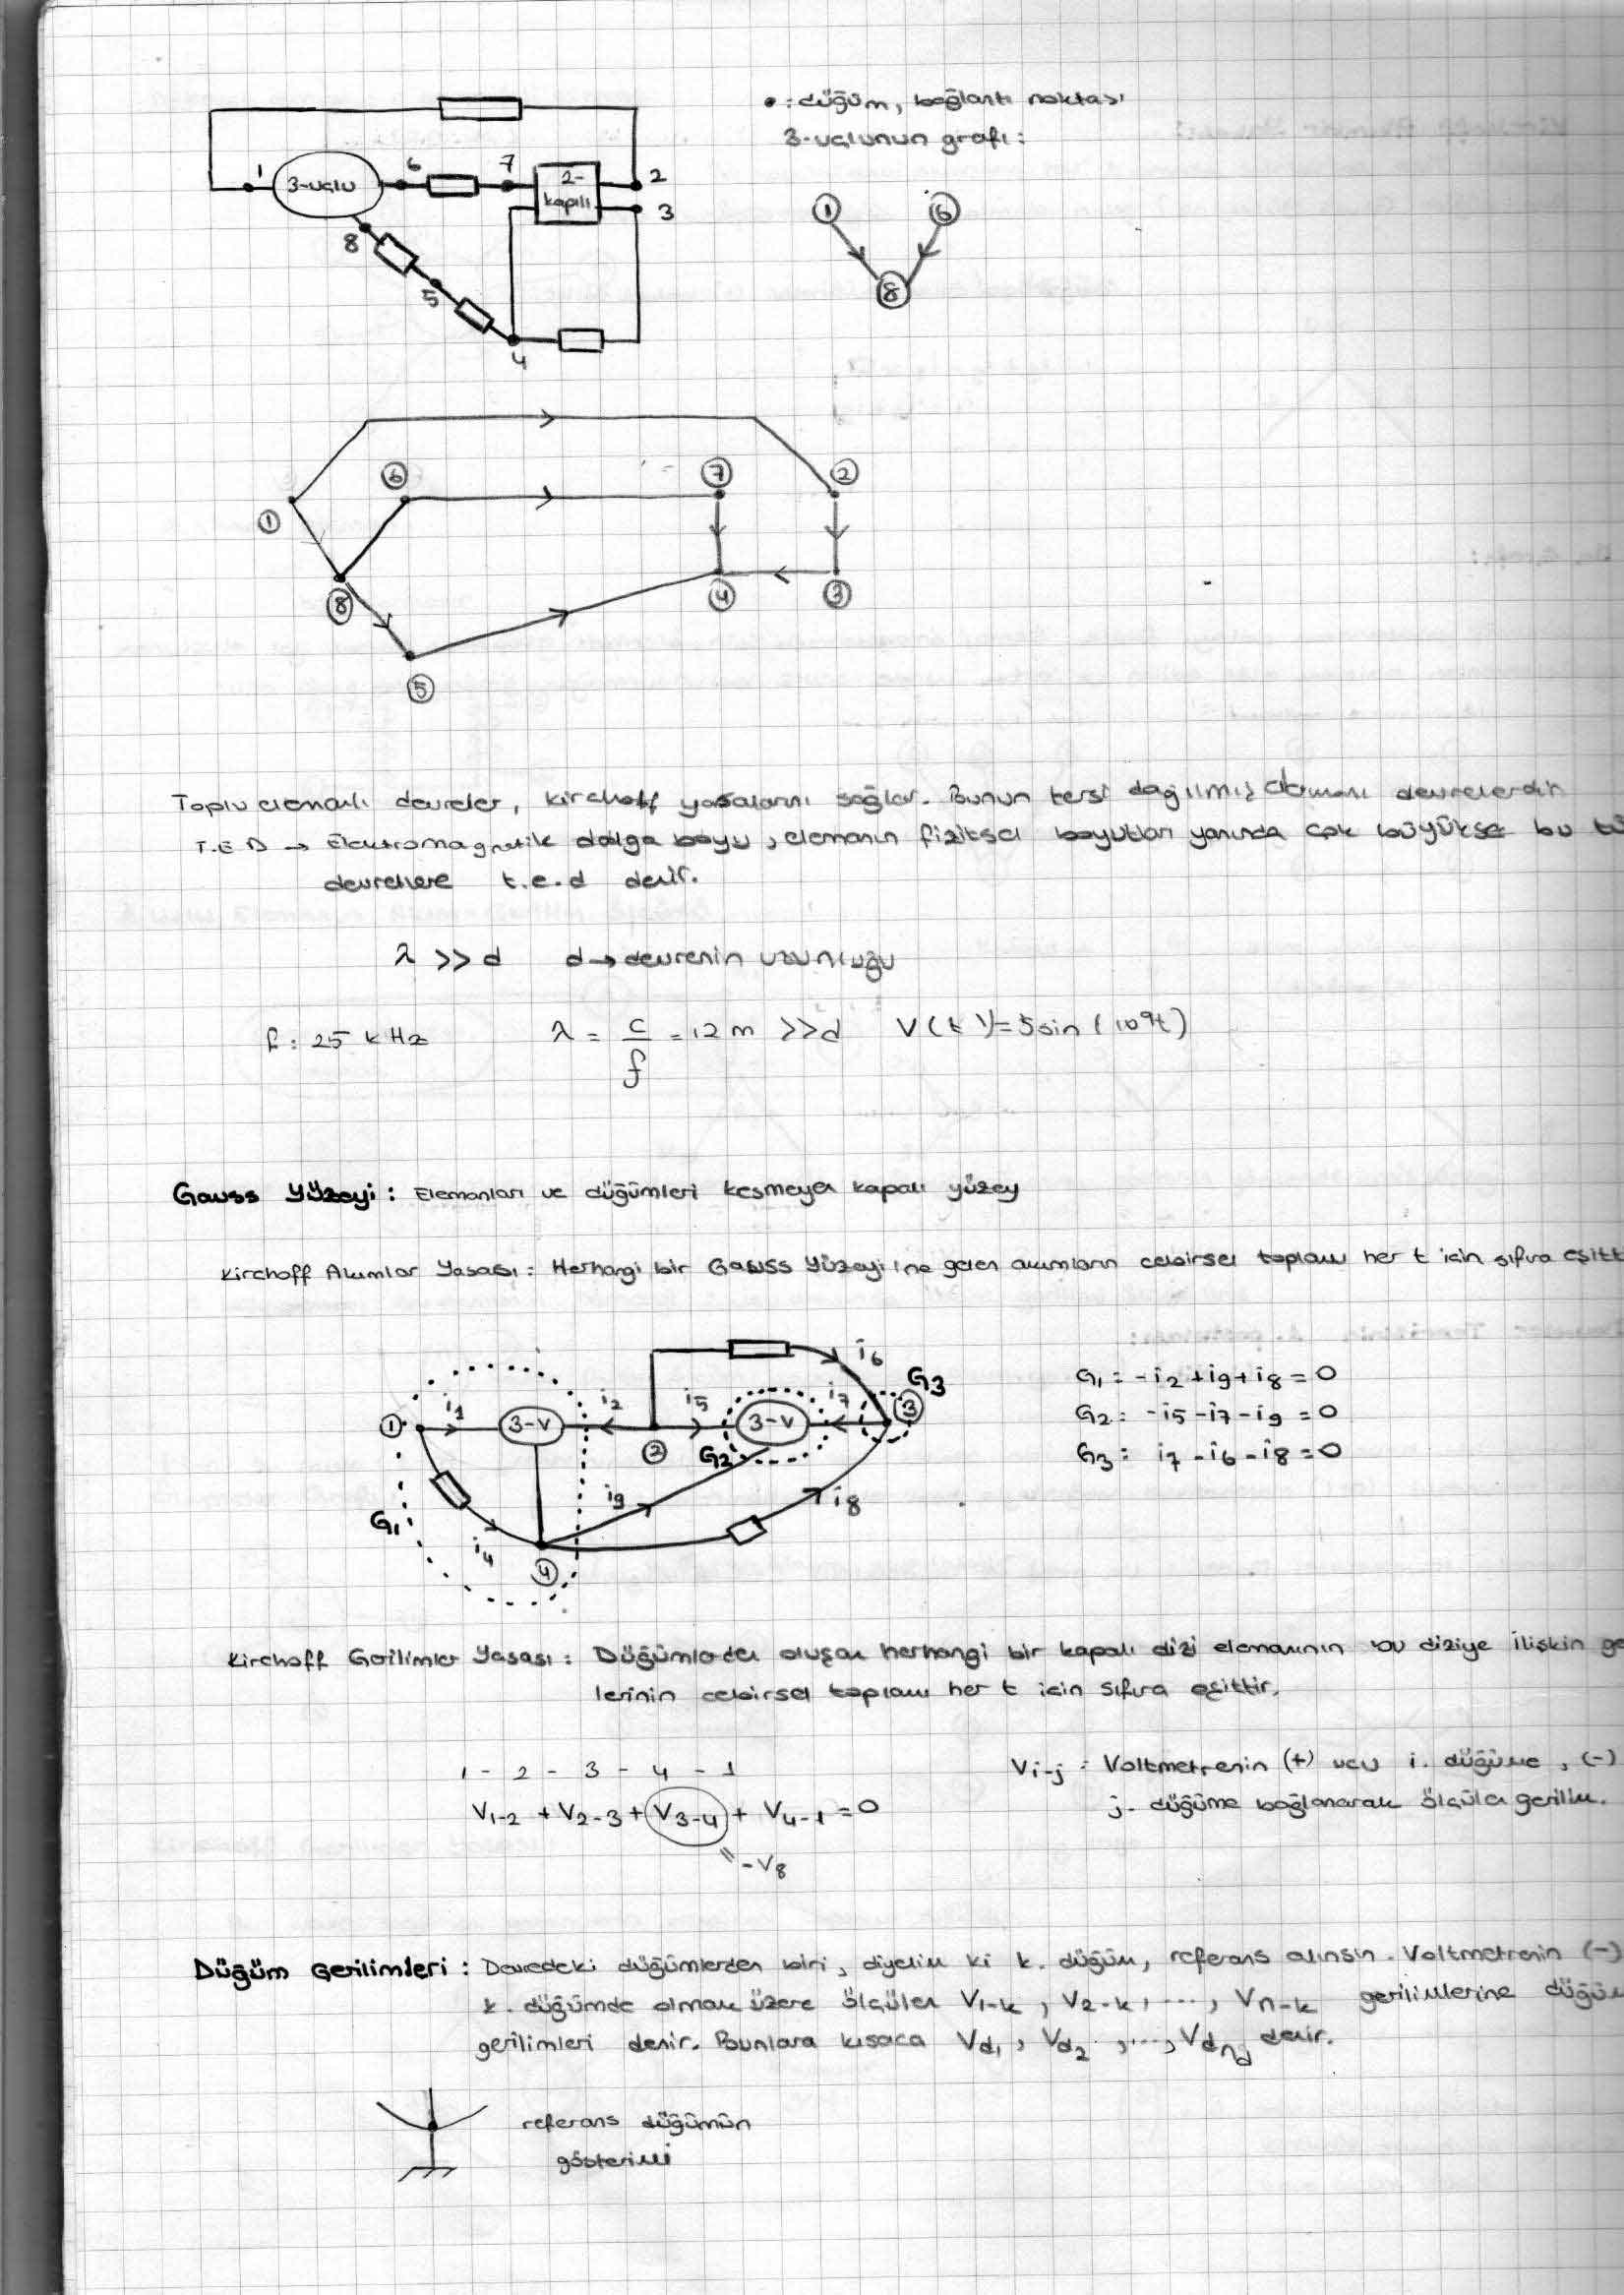 • : düğüm, bağlantı noktası
3-uçlunun grafı:
1 3-uçlu 6 7 2-kapılı 2
3
8
5
4
1 6
8
6 7 2
1
8 4 3
5
Toplu elemanlı devreler, kirchoff yasalarını sağlar. Bunun tersi dağılmış elemanlı devrelerdir
T.E.D → Elektromagnetik dalga boyu, elemanın fiziksel boyutları yanında çok büyükse bu tü
devrelere t.e.d denir.
λ >> d d → devrenin uzunluğu
f: 25 kHz λ = c/f = 12 m >>d V(t)=5sin(10⁹t)
Gauss Yüzeyi: Elemanları ve düğümleri kesmeyen kapalı yüzey
Kirchoff Akımlar Yasası: Herhangi bir Gauss Yüzeyi'ne gelen akımların cebirsel toplamı her t için sıfıra eşitt
i6
G3
1 i1 3-U i2 i5 3-U i7 3
2 G2
G1 i4 i9 i8
4
G1: -i2+i9+i8=0
G2: -i5-i7-i9=0
G3: i7-i6-i8=0
Kirchoff Gerilimler Yasası: Düğümlerden oluşan herhangi bir kapalı dizi elemanının bu diziye ilişkin ge
lerinin cebirsel toplamı her t için sıfıra eşittir.
1 - 2 - 3 - 4 - 1
V1-2 + V2-3 + V3-4 + V4-1 = 0
= -V8
Vi-j : Voltmetrenin (+) ucu i. düğüme, (-)
j. düğüme bağlanarak ölçülen gerilim.
Düğüm Gerilimleri: Devredeki düğümlerden biri, diyelim ki k. düğüm, referans alınsın. Voltmetrenin (-)
k. düğümde olmak üzere ölçülen V1-k, V2-k, ..., Vn-k gerilimlerine düğüm
gerilimleri denir. Bunlara kısaca Vd1, Vd2, ..., Vdnd denir.
referans düğümün
gösterimi